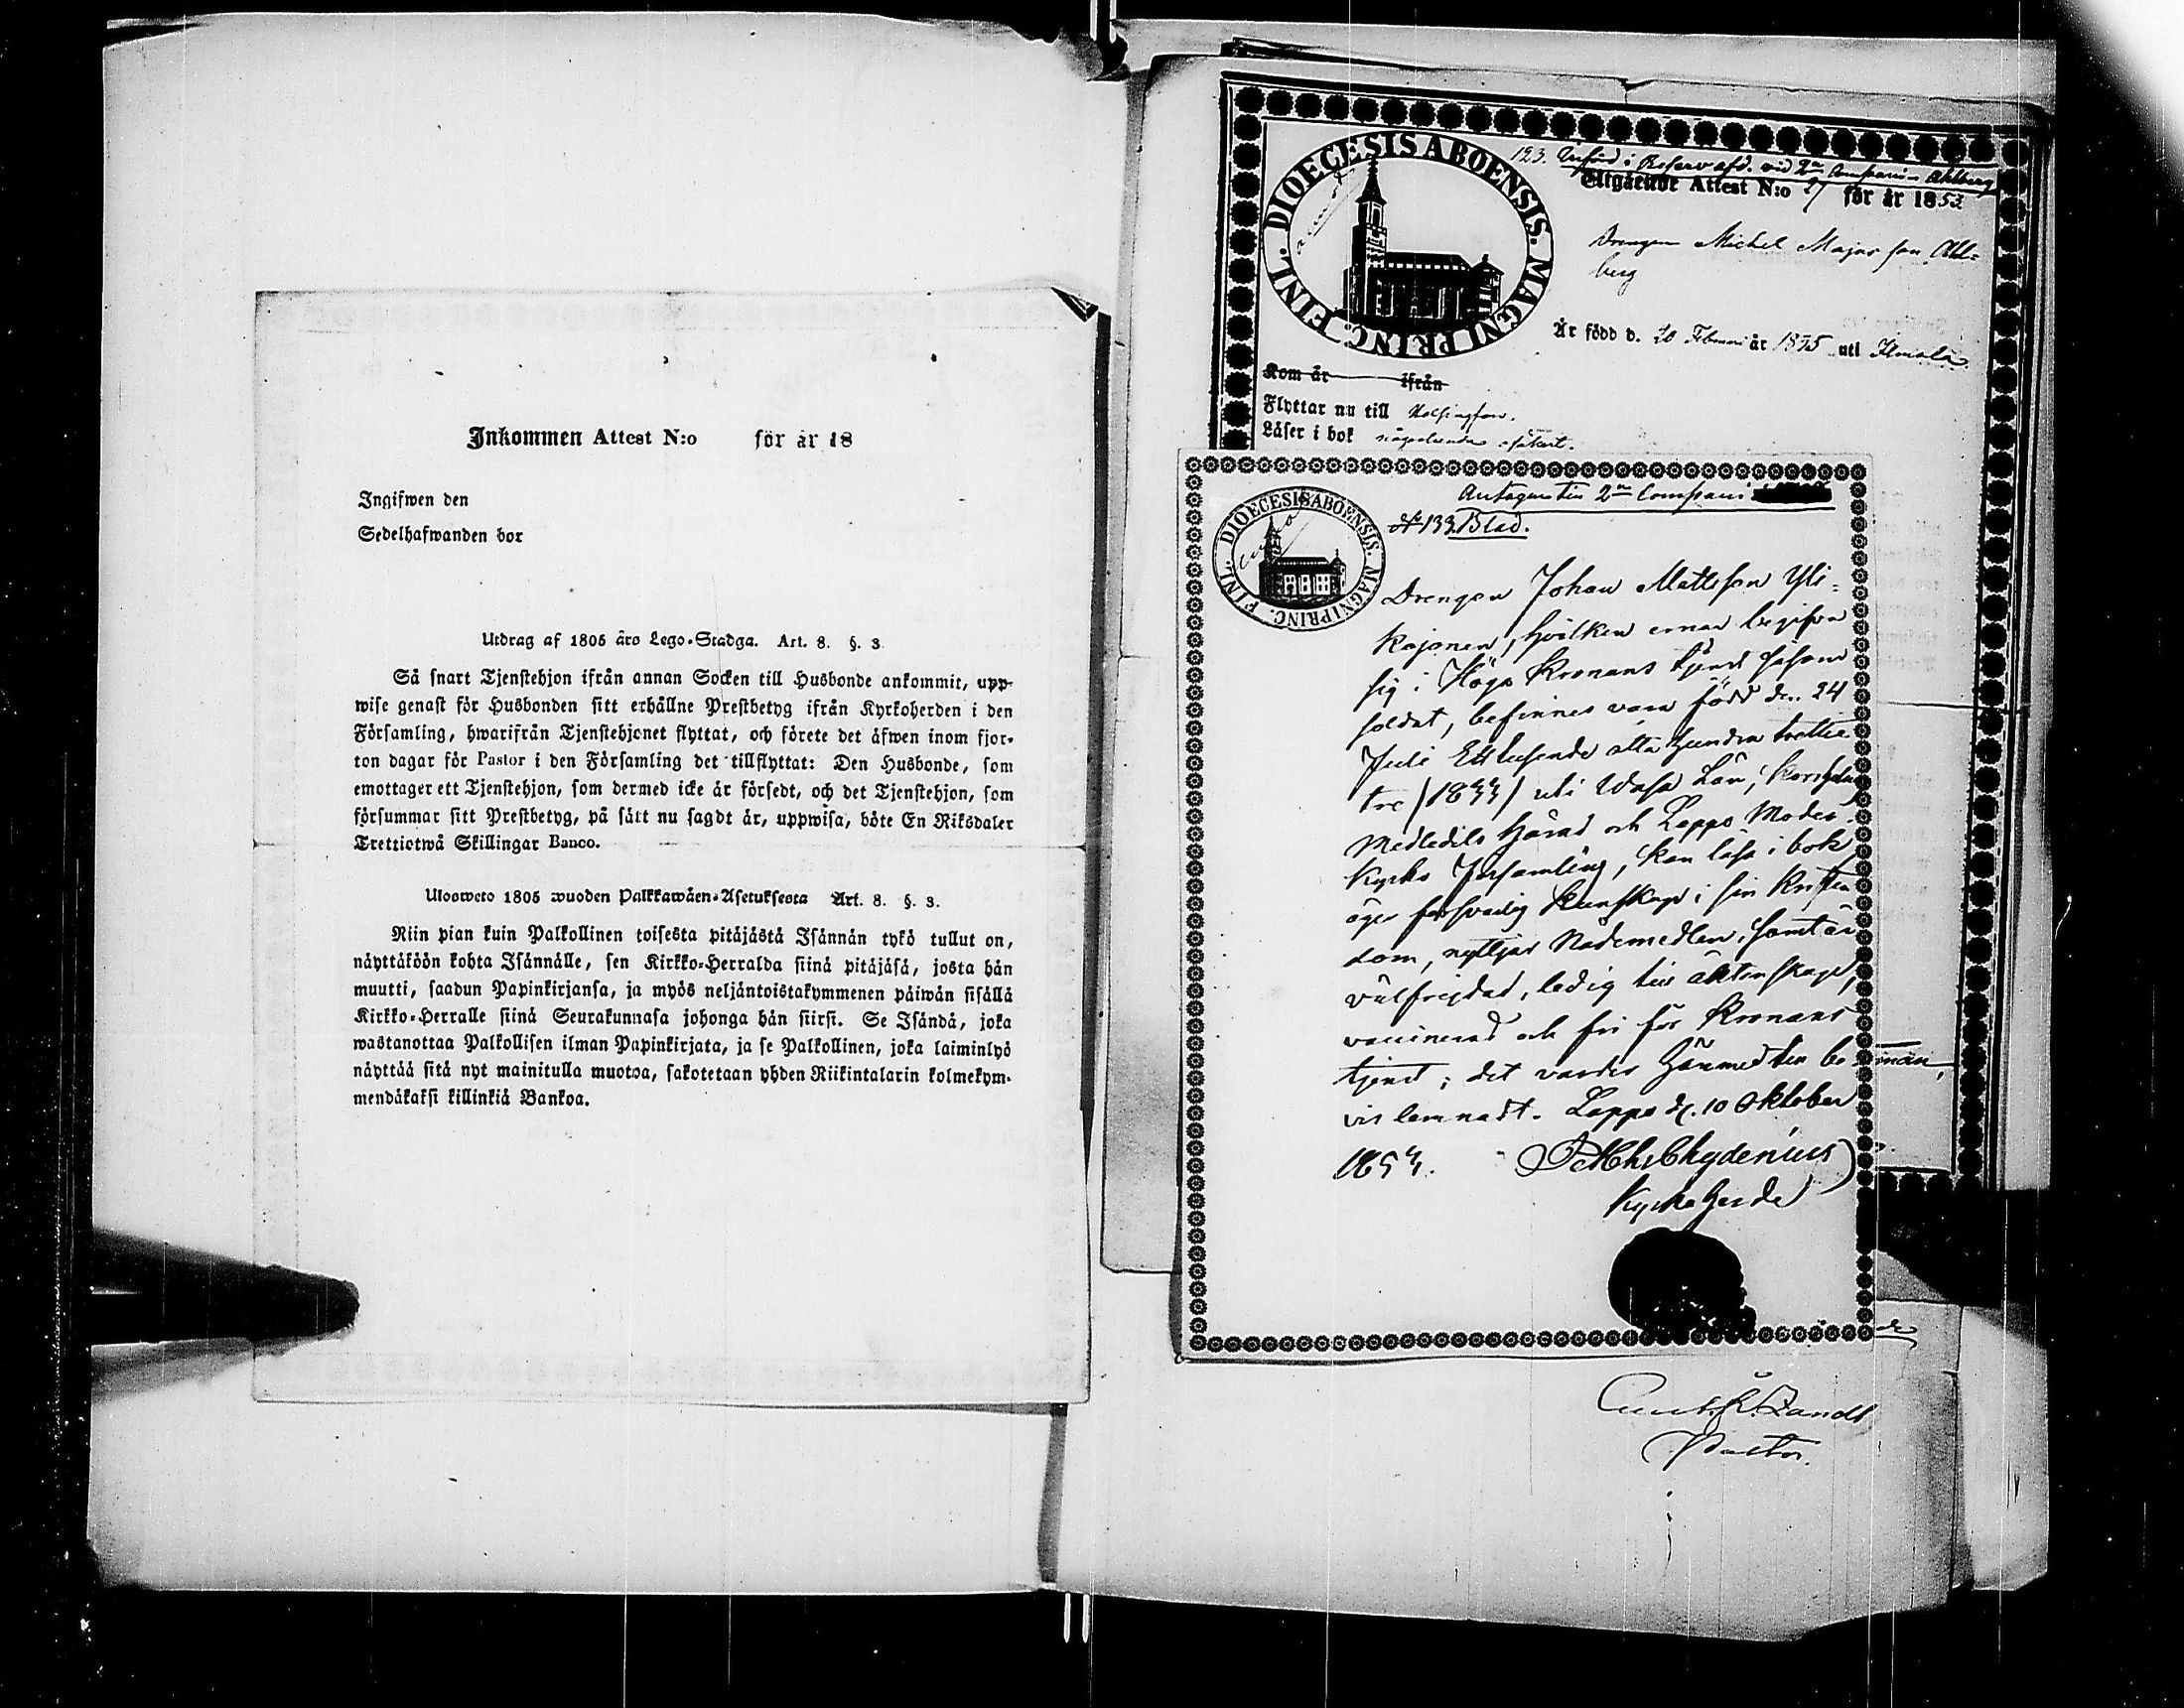 Inkommen Attest N:o för år 18
Ingifwen den
Sedelhafwanden bor
Utdrag af 1805 års Lego-Stadga. Art. 8. §. 3
Så snart Tjenstehjon ifrån annan Socken till Husbonde ankommit, upp-
wise genast för Husbonden sitt erhållne Prestbetyg ifrån Kyrkoherden i den
Församling, hwarifrån Tjenstehjonet flyttat, och förete det äfwen inom fjor-
ton dagar för Pastor i den Församling det tillflyttat: Den Husbonde, som
emottager ett Tjenstehjon, som dermed icke är försedt, och det Tjenstehjon, som
försummar sitt Prestbetyg, på sätt nu sagdt är, uppwisa, böte En Riksdaler
Trettiotwå Skillingar Banco.
Ulosweto 1805 wuoden Palkkawäen-Asetuksesta Art. 8. §. 3.
Niin pian kuin Palkollinen toisesta pitäjästä Isännän tykö tullut on,
näyttäköön kohta Isännälle, sen Kirkko-Herralda siinä pitäjäsä, josta hän
muutti, saadun Papinkirjansa, ja myös neljäntoistakymmenen päiwän sisällä
Kirkko-Herralle siinä Seurakunnasa johonga hän siirsi. Se Isändä, joka
wastanottaa Palkollisen ilman Papinkirjata, ja se Palkollinen, joka laiminlyö
näyttää sitä nyt mainitulla muotoa, sakotetaan yhden Riikintalarin kolmekym-
mendäkaksi killinkiä Bankoa.
DIOECESIS ABOENSIS. MAGNI PRINC. FINL.
123. Införd i Reserv afd. vid 2n Companie Ahlberg
Utgående Attest N:o 27 för år 1853
Drengen Michel Majas son Ahl-
berg
Är född d. 20 Februari år 1835 uti Ilmola
Kom år ifrån
Flyttar nu till Helsingfors.
Läser i bok någorlunda
DIOECESIS ABOENSIS. MAGNI PRINC. FINL.
Antagen till 2n Compani
N 133 Blad.
Drengen Johan Mattsson Yli-
kojonen, hvilken ernar begifva
sig i Höga Kronans tjenst såsom
soldat, befinnes vara född den 24
Juli Ettusende åtta hundra trettio
tre (1833) uti Wasa Län, Korsholms
Medledels Härad och Lappo Moder-
Kyrko Församling, kan läsa i bok
äger försvarlig kunskap i sin Kristen
dom, nyttjar Nådemedlen, samt är
välfrejdad, ledig till äktenskap,
vaccinerad och fri för Kronans
tjenst; det varder härmed till be
vis lemnadt. Lappo d. 10 Oktober
1853. Chydenius
Kyrkoherde
Pastor.